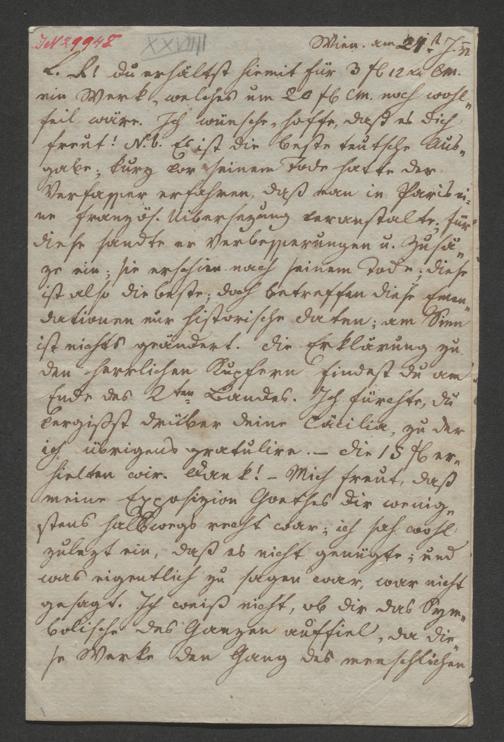 IN 29948
XXVIII
Wien. am 24t. J
L. R! Du erhältst hiemit für 3 fl 12 xr CM.
ein Werk, welches um 20 fl CM. noch wohl„
feil wäre. Ich wünsche, hoffe, daß es dich
freut! Nb. Es ist die beste teutsche Aus„
gabe; kurz vor seinem Tode hatte der
Verfasser erfahren, daß man in Paris ei„
ne französ. Uibersezung veranstalte, für
diese sandte er Verbesserungen u. Zusä„
ze ein; sie erschien nach seinem Tode; diese
ist also die beste; doch betreffen diese Emen„
dationen nur historische Daten; am Sinn
ist nichts geändert. Die Erklärung zu
den herrlichen Kupfern findest du am
Ende des 2ten Bandes. Ich fürchte, du
vergißst drüber deine Cäcilia, zu der
ich übrigens gratulire. – Die 15 fl er„
hielten wir. Dank! – Mich freut, daß
meine Exposizion Goethes dir wenig„
stens halbwegs recht war; ich sah wohl
zulezt ein, daß es nicht genügte; und
was eigentlich zu sagen war, war nicht
gesagt. Ich weiß nicht, ob dir das Sym„
bolische des Ganzen auffiel, da die„
se Werke den Gang des menschlichen